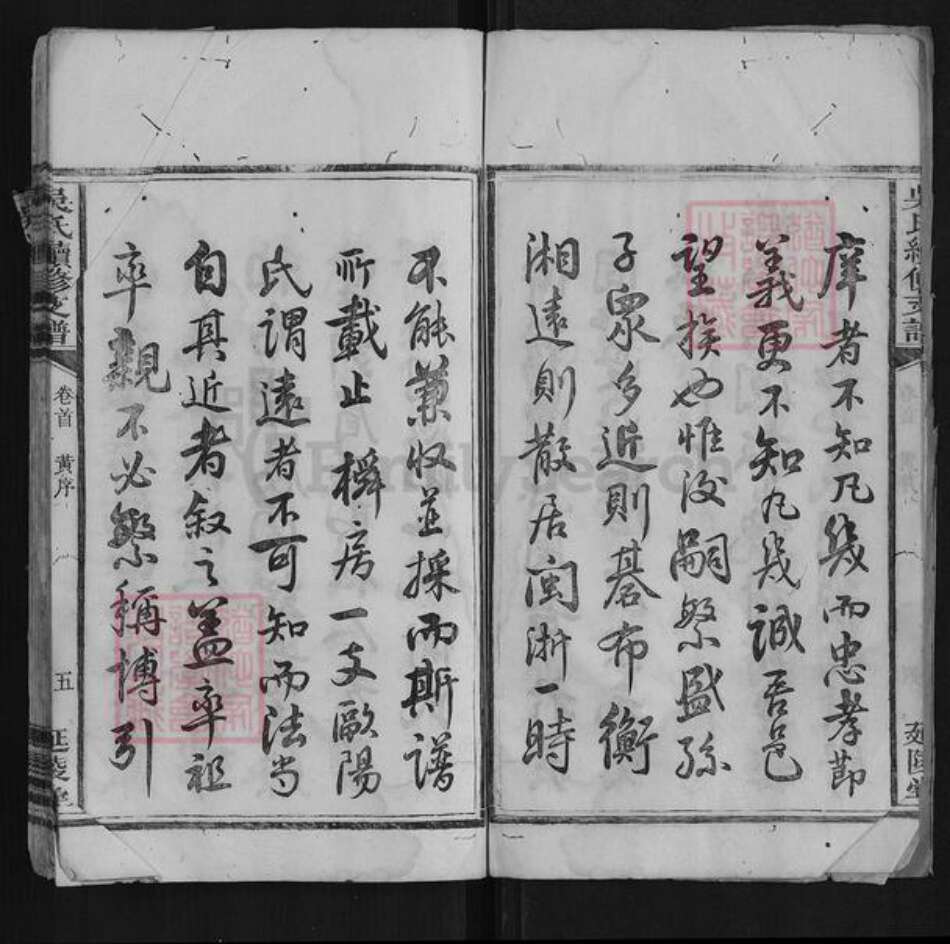 庠者不知凡幾而忠孝節
義更不知凡幾誠吾邑
望族也惟後嗣繁盛孫
子眾多近則碁布衡
湘遠則散居閩浙一時
不能兼收並採而斯譜
所載止檊房一支歐陽
氏謂遠者不可知而法當
自其近者敘之蓋率祖
率親不必繁稱博引
吳氏續修支譜
卷首
黃序
五
延陵堂
FamilySearch